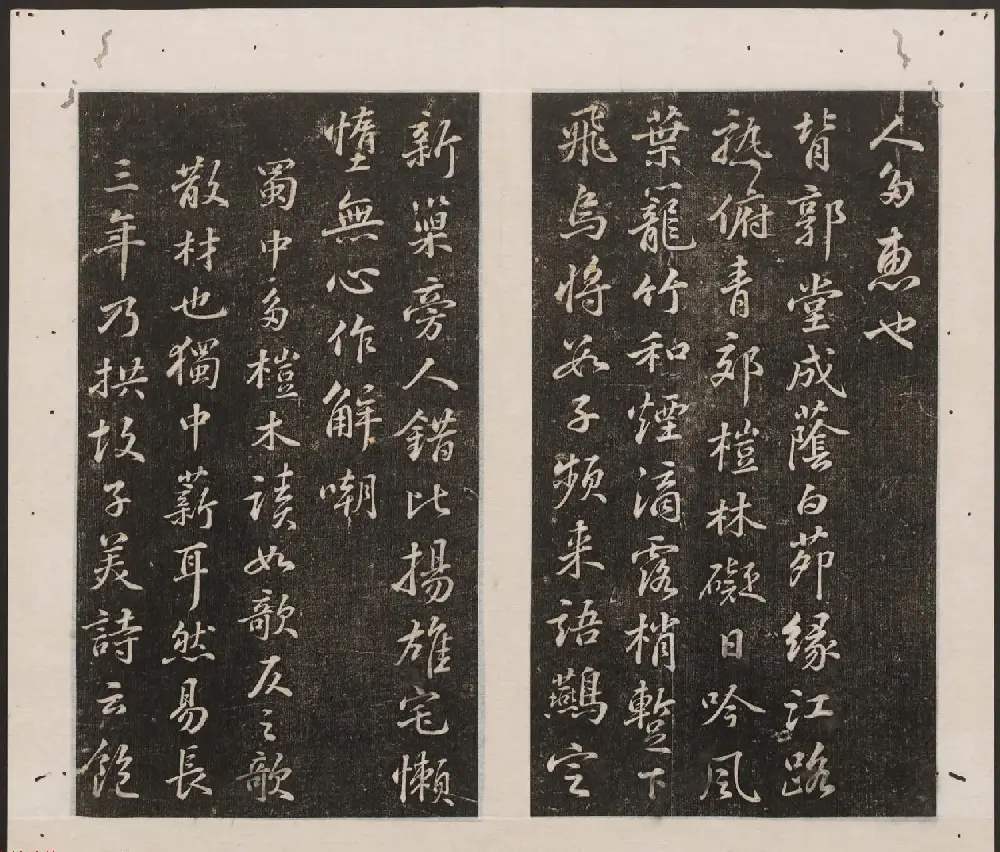 人多惠也
背郭堂成蔭白茆緣江路
熟俯青郊榿林礙日吟風
葉籠竹和煙滴露梢蹔下
飛烏將數子頻来語鷰定
新巢旁人錯比揚雄宅懶
惰無心作解嘲
蜀中多榿木讀如欹仄之欹
散材也獨中薪耳然易長
三年乃拱故子美詩云飽